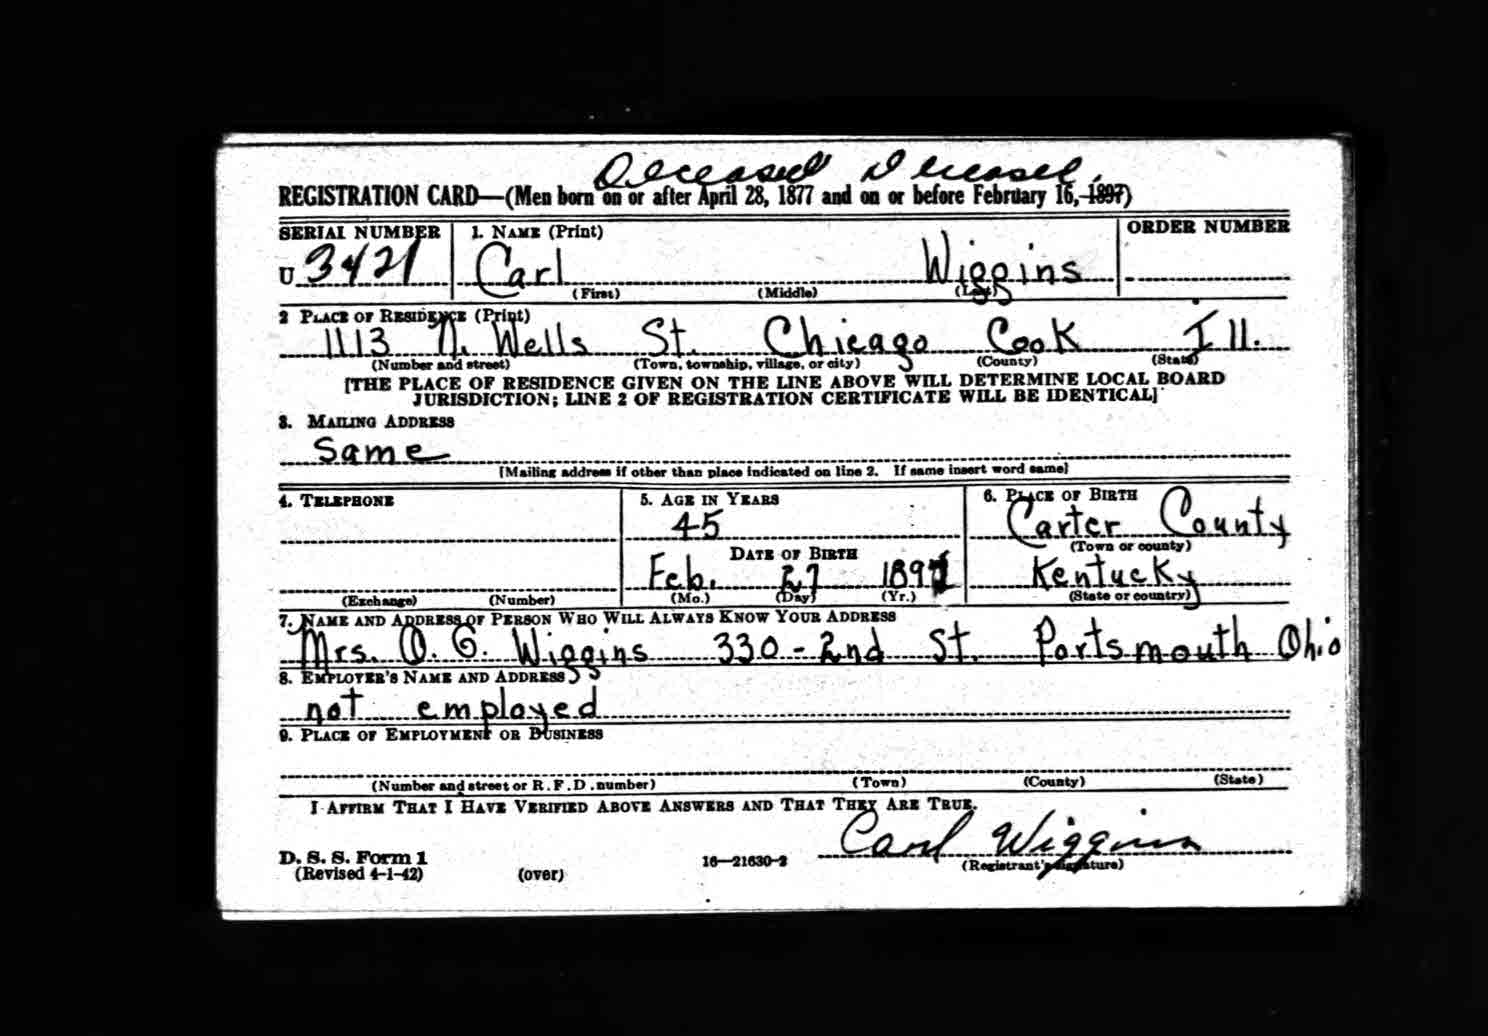 Deceased Deceased
REGISTRATION CARD—(Men born on or after April 28, 1877 and on or before February 16, 1897)
SERIAL NUMBER 1. NAME (Print) ORDER NUMBER
U 3421 Carl Wiggins
(First) (Middle) (Last)
2 PLACE OF RESIDENCE (Print)
1113 N. Wells St. Chicago Cook Ill.
(Number and street) (Town, township, village, or city) (County) (State)
[THE PLACE OF RESIDENCE GIVEN ON THE LINE ABOVE WILL DETERMINE LOCAL BOARD
JURISDICTION; LINE 2 OF REGISTRATION CERTIFICATE WILL BE IDENTICAL]
3. MAILING ADDRESS
Same
[Mailing address if other than place indicated on line 2. If same insert word same]
4. TELEPHONE 5. AGE IN YEARS 6. PLACE OF BIRTH
45 Carter County
(Town or county)
DATE OF BIRTH
Feb. 27 1897 Kentucky
(Exchange) (Number) (Mo.) (Day) (Yr.) (State or country)
7. NAME AND ADDRESS OF PERSON WHO WILL ALWAYS KNOW YOUR ADDRESS
Mrs. O. G. Wiggins 330-2nd St. Portsmouth Ohio
8. EMPLOYER'S NAME AND ADDRESS
not employed
9. PLACE OF EMPLOYMENT OR BUSINESS
(Number and street or R.F.D. number) (Town) (County) (State)
I AFFIRM THAT I HAVE VERIFIED ABOVE ANSWERS AND THAT THEY ARE TRUE.
Carl Wiggins
D. S. S. Form 1 16—21630-2 (Registrant's signature)
(Revised 4-1-42) (over)